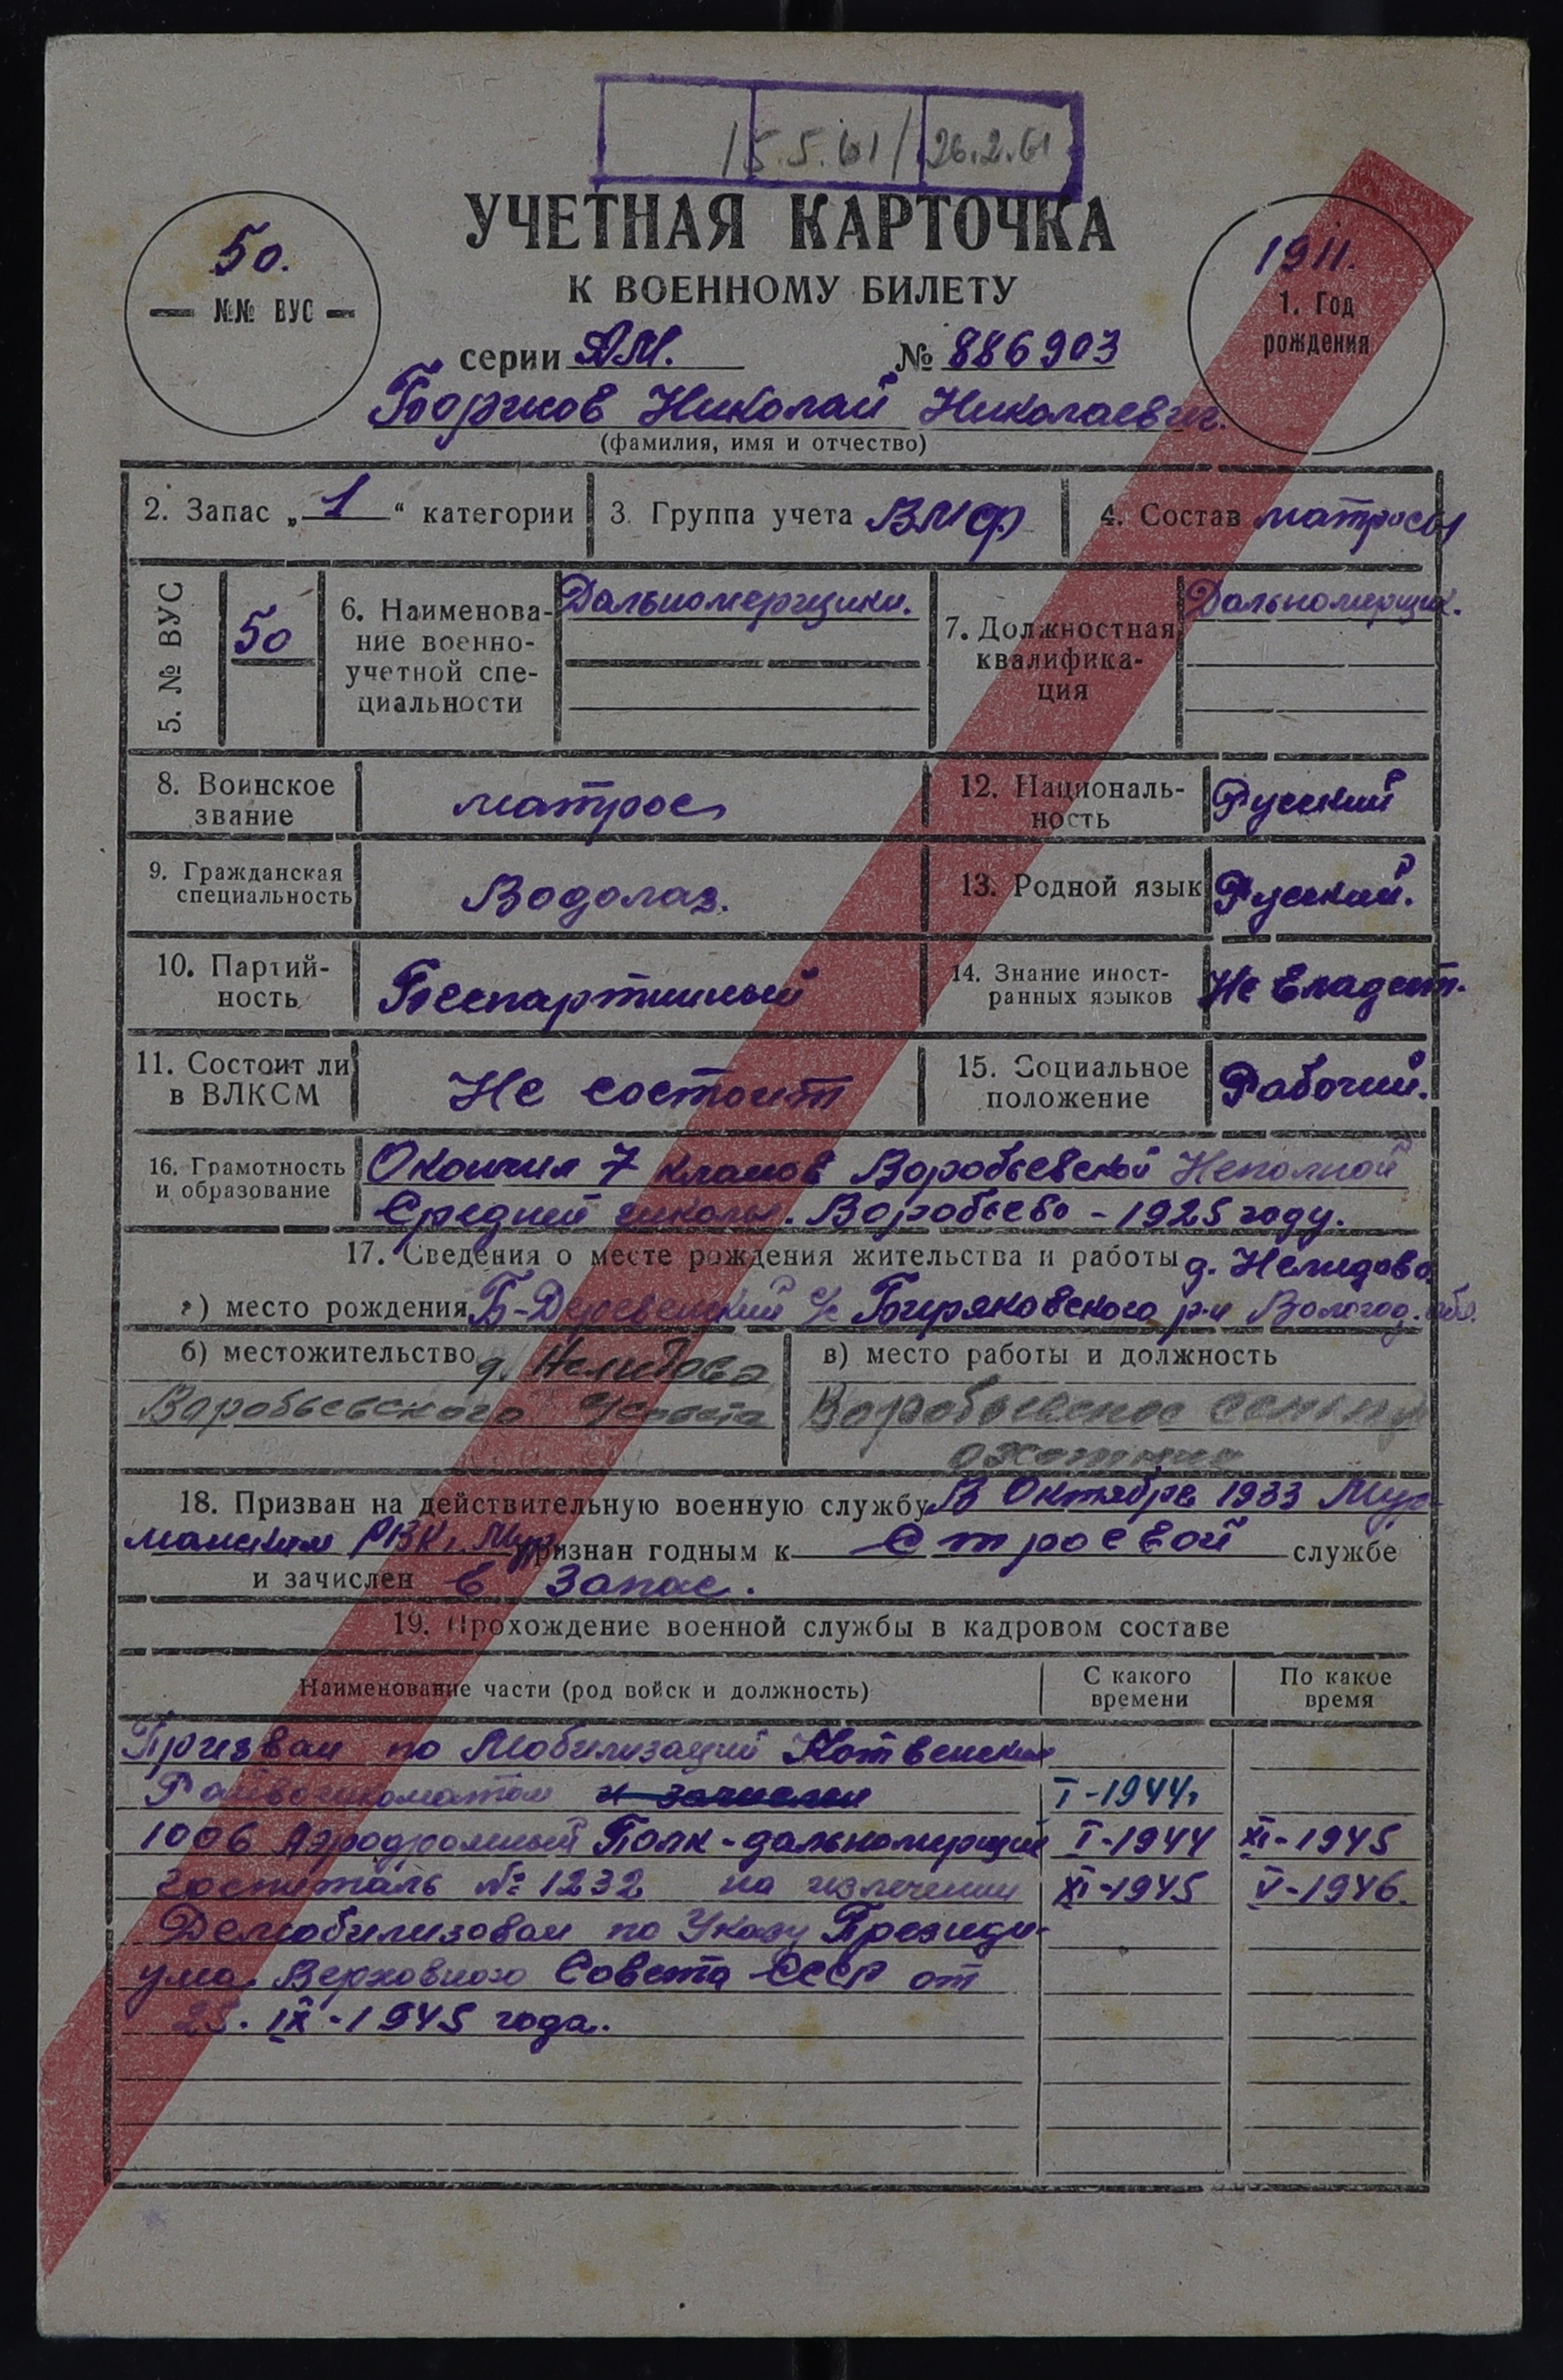 15.5.61 26.2.61
УЧЕТНАЯ КАРТОЧКА
К ВОЕННОМУ БИЛЕТУ
50.
№№ ВУС
1911.
1. Год
рождения
серии АМ. № 886903
Борисов Николай Николаевич.
(фамилия, имя и отчество)
2. Запас „1“ категории 3. Группа учета ВМФ 4. Состав матросы
5. № ВУС 50 6. Наименова-
ние военно-
учетной спе-
циальности
Дальномерщики.
7. Должностная
квалифика-
ция
Дальномерщик.
8. Воинское
звание
матрос
12. Националь-
ность
Русский
9. Гражданская
специальность
Водолаз.
13. Родной язык Русский.
10. Партий-
ность
Беспартийный
14. Знание иност-
ранных языков
Не владеет.
11. Состоит ли
в ВЛКСМ
Не состоит
15. Социальное
положение
Рабочий.
16. Грамотность
и образование
Окончил 7 классов Воробьевской Неполной
Средней школы. Воробьево - 1925 году.
17. Сведения о месте рождения жительства и работы д. Немидово
а) место рождения Б-Деревенский с/с Биряковского р-н Вологод. обл.
б) местожительство д. Нелидова
Воробьевского с/совета
в) место работы и должность
Воробьевское
охотник
18. Призван на действительную военную службу В Октябре 1933 Мур-
манским РВК, Мур. признан годным к Строевой службе
и зачислен в запас.
19. Прохождение военной службы в кадровом составе
Наименование части (род войск и должность) С какого
времени По какое
время
Призван по Мобилизации
Райвоенкоматом и зачислен I-1944г
1006 Аэродромный Полк - дальномерщик I-1944 XI-1945
госпиталь № 1232 на излечении XI-1945 V-1946.
Демобилизован по Указу Президи-
ума Верховного Совета СССР от
25. IX-1945 года.